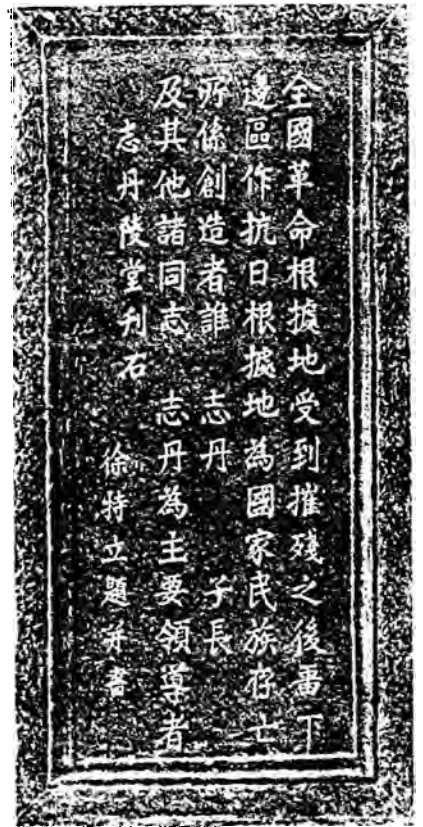 全國革命根據地受到摧殘之後畱下
邊區作抗日根據地為國家民族存亡
所係創造者誰 志丹 子長
及其他諸同志 志丹為主要領導者
志丹陵堂刋石
徐特立題并書